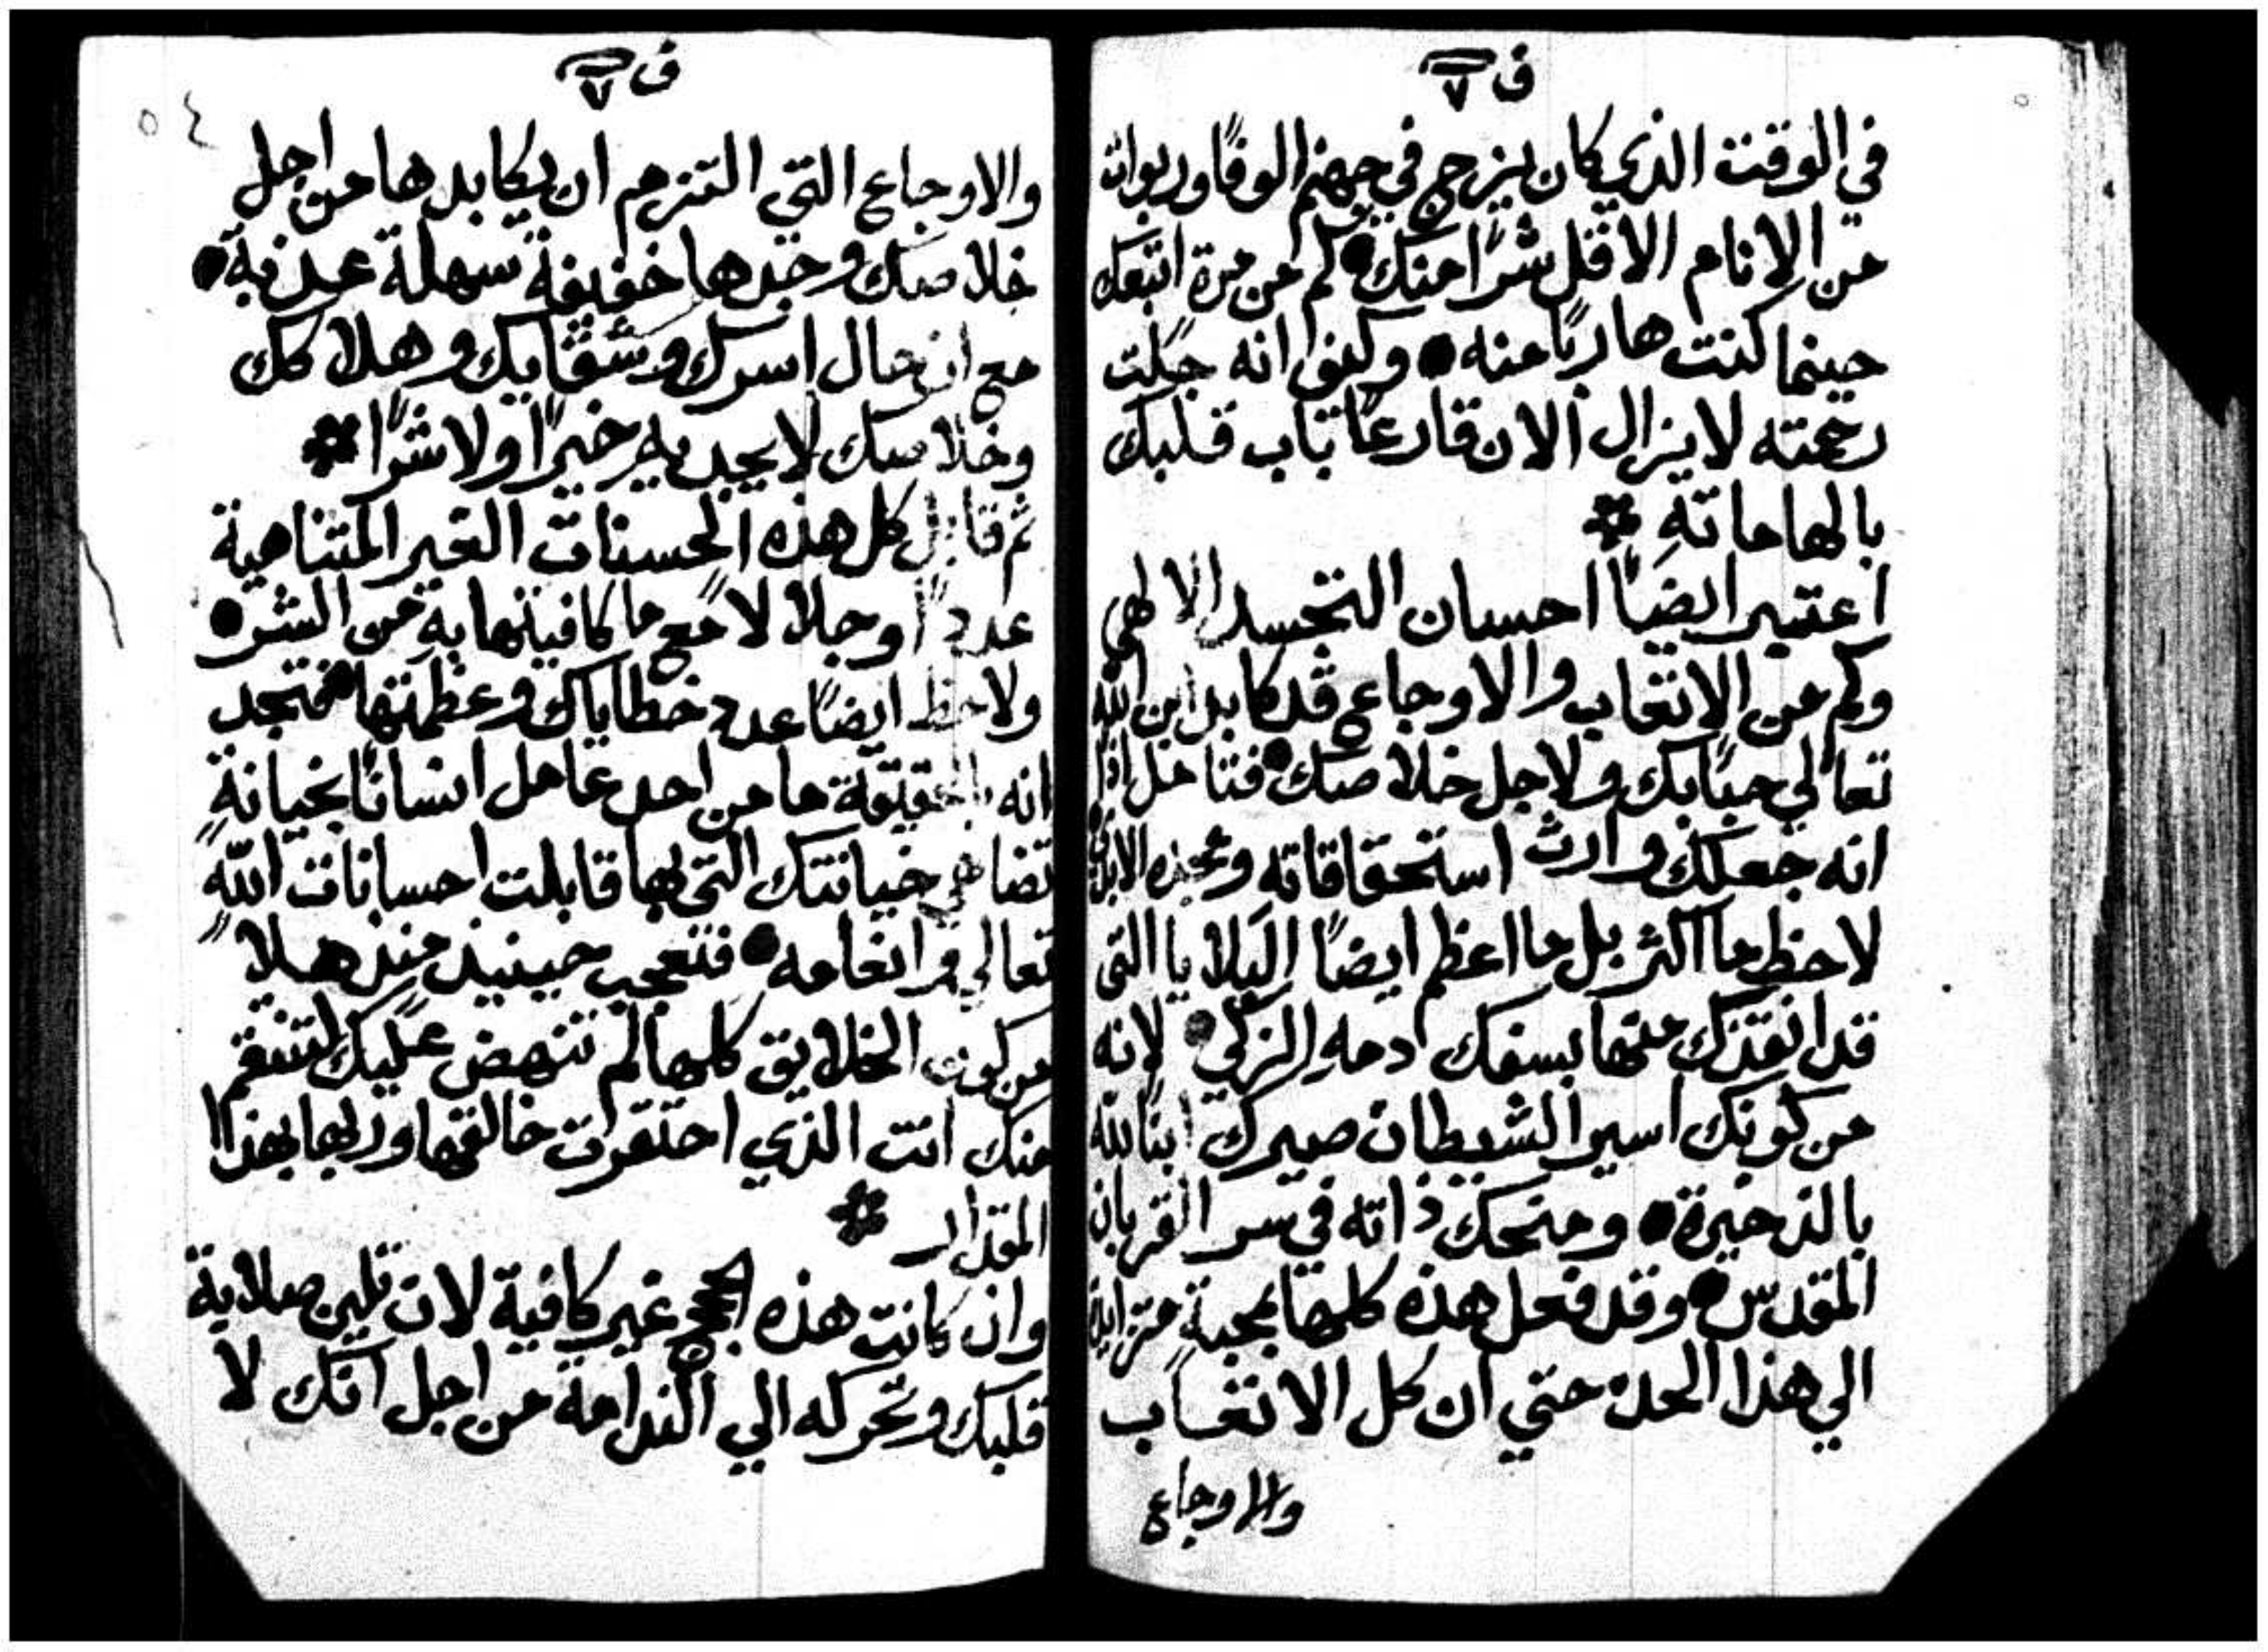 ف ٧
في الوقت الذي كان يزج في جهنم الوفًا وربوات
من الانام الاقل شرًا منك • كم من مرة اتبعك
حينما كنت هاربًا منه • وكيف انه جبلت
رحمته لا يزال الان قارعًا باب قلبك
بالهاماته *
اعتبر ايضًا احسان التجسد الالهي
وكم من الاتعاب والاوجاع قد كابد ابن الله
تعالي حبًا بك ولاجل خلاصك • فتامل اذا
انه جعلك وارث استحقاقاته ومجده الابدي
لاحظ ما اكثر بل ما اعظم ايضًا البلايا التي
قد انقذك منها بسفك دمه الزكي • لانه
من كونك اسير الشيطان صيرك ابنًا لله
بالذخيرة • ومنحك ذاته في سر القربان
المقدس • وقد فعل هذه كلها بمحبةٍ متزايدة
الي هذا الحد • حتي ان كل الاتعاب
والاوجاع
ف ٧
٥٤
والاوجاع التي التزم ان يكابدها من اجل
خلاصك وجدها خفيفة سهلة عذبة •
مع ان حال اسرك وشقايك وهلاكك
وخلاصك لا يجديه خيرًا ولا شرًا *
ثم قابل كل هذه الحسنات الغير المتناهية
عددًا وجلالًا مع ما كافيتها به من الشر •
ولاحظ ايضًا عدد خطاياك وعظمتها • فتجد
انه بالحقيقة ما من احد عامل انسانًا بخيانةٍ
تضاهي خيانتك التي بها قابلت احسانات الله
تعالي وانعامه • فتعجب حينيذ منذهلًا
من كون الخلايق كلها لم تنهض عليك لتنتقم
منك انت الذي احتقرت خالقها وربها بهذا
المقدار *
وان كانت هذه الحجج غير كافية لان تلين صلابة
قلبك وتحركه الي الندامة من اجل انك لا